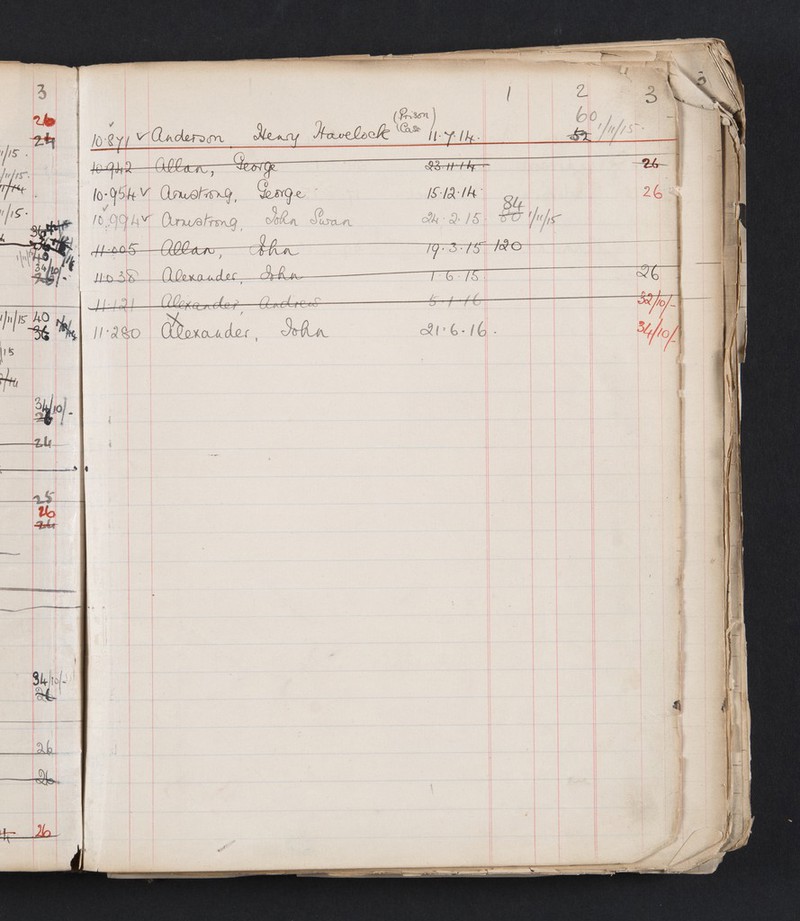 3
26
24
1/15.
1/15.
34/10/-
1/11/15 40
36
34/10/-
26
24
25
26
26
34/10/-
26
26
26
26
1 2 3
(Prison) 60
10.871 v Anderson, Henry Havelock Case 11.7.14. 52 1/11/15.
10.942 Allan, George 23.11.14 26
10.954 v Armstrong, George 15.12.14 26
84
10.994 v Armstrong, John Swan 24.2.15 80 1/11/15
11.005 Allan, John 19.3.15 120
11.038 Alexander, John 1.6.15 26
11.121 Alexander, Andrew 5.1.16 32/10/-
11.280 Alexander, John 21.6.16. 34/10/-